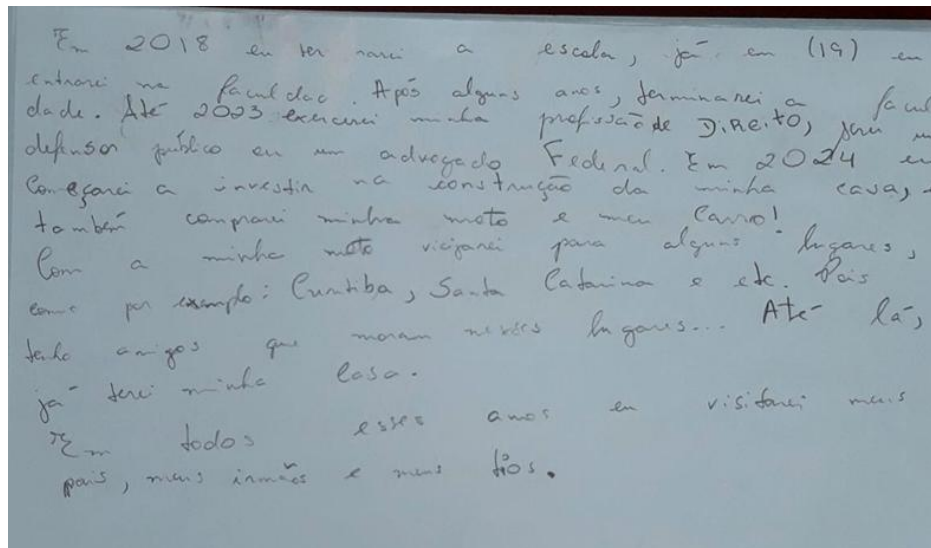 Em 2018 eu terminarei a escola, já em (19) eu
entrarei na faculdac. Após alguns anos, terminarei a facul
dade. Até 2023 exercerei minha profissão de Direito, serei um
defensor público ou um advogado Federal. Em 2024 eu
Começarei a investir na construção da minha casa,
também comprarei minha moto e meu Carro!
Com a minha moto viajarei para alguns lugares,
como por exemplo: Curitiba, Santa Catarina e etc. Pois
tenho amigos que moram nesses lugares... Até lá,
já terei minha casa.
Em todos esses anos eu visitarei meus
pais, meus irmãos e meus tios.